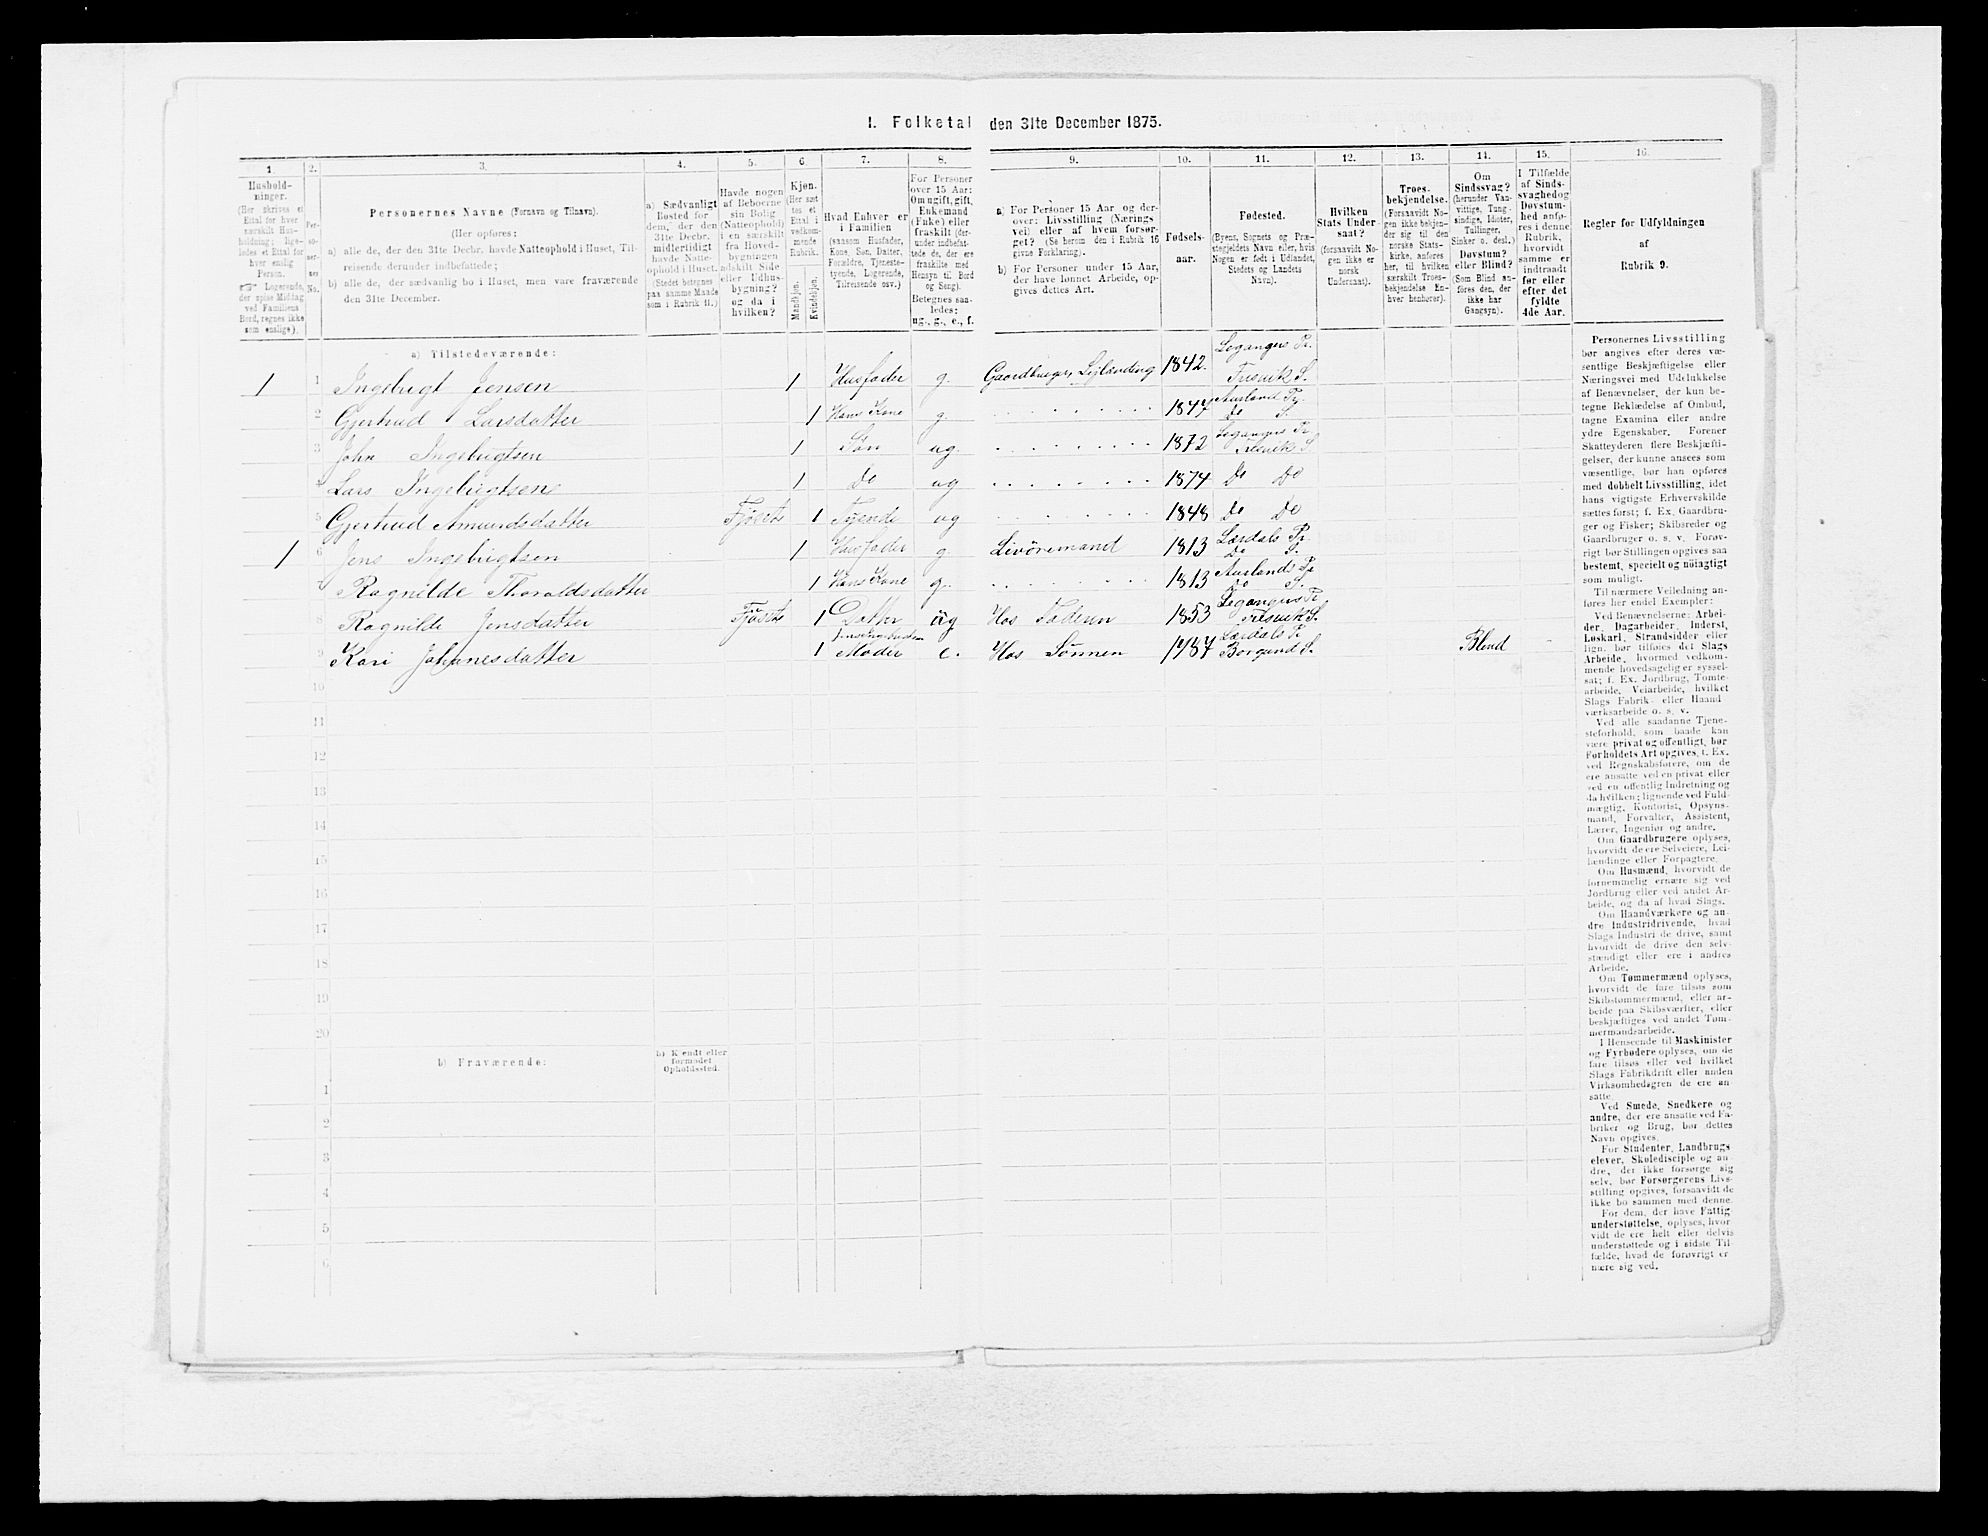 I. Folketal den 31te December 1875.
1. 2. 3. 4. 5. 6. 7. 8. 9. 10. 11. 12. 13. 14. 15. 16.
Hushold-
ninger.
(Her skrives et
Ettal for hver
særskilt Hus-
holdning; lige-
ledes et Ettal for
hver enslig
Person.
☞ Logerende,
der spise Middag
ved Familiens
Bord, regnes ikke
som enslige).
Per-
so-
ner-
nes
No.
Personernes Navne (Fornavn og Tilnavn).
(Her opføres:
a) alle de, der den 31te Decbr. havde Natteophold i Huset, Til-
reisende derunder indbefattede;
b) alle de, der sædvanlig bo i Huset, men vare fraværende
den 31te December.
a) Sædvanligt
Bosted for
dem, der den
31te Decbr.
midlertidigt
havde Natte-
ophold i Huset.
(Stedet betegnes
paa samme Maade
som i Rubrik 11.)
Havde nogen
af Beboerne
sin Bolig
(Natteophold)
i en særskilt
fra Hoved-
bygningen
adskilt Side
eller Udhus-
bygning?
og da i
hvilken?
Kjøn.
(Her sæt-
tes et
Ettal i
vedkom-
mende
Rubrik.
Mandkjøn.
Kvindekjøn.
Hvad Enhver er
i Familien
(saasom Husfader,
Kone, Søn, Datter,
Forældre, Tjeneste-
tyende, Logerende,
Tilreisende osv.)
For Personer
over 15 Aar:
Om ugift, gift,
Enkemand
(Enke) eller
fraskilt (der-
under indbefat-
tede de, der ere
fraskilte med
Hensyn til Bord
og Seng).
Betegnes saa-
ledes:
ug., g., e., f.
a) For Personer 15 Aar og der-
over: Livsstilling (Nærings-
vei) eller af hvem forsør-
get? (Se herom den i Rubrik 16
givne Forklaring).
b) For Personer under 15 Aar,
der have lønnet Arbeide, op-
gives dettes Art.
Fødsels-
aar.
Fødested.
(Byens, Sognets og Præ-
stegjeldets Navn eller, hvis
Nogen er født i Udlandet,
Stedets og Landets
Navn).
Hvilken
Stats Under-
saat?
(forsaavidt No-
gen ikke er
norsk
Undersaat).
Troes-
bekjendelse.
(Forsaavidt No-
gen ikke bekjen-
der sig til den
norske Stats-
kirke, anføres
her, til hvilken
særskilt Troes-
bekjendelse En-
hver henhører).
Om
Sindssvag?
(herunder Van-
vittige, Tung-
sindige, Idioter,
Tullinger,
Sinker o. desl.)
Døvstum?
eller Blind?
(Som Blind an-
føres den, der
ikke har
Gangsyn).
I Tilfælde
af Sinds-
svaghed og
Døvstum-
hed anfø-
res i denne
Rubrik,
hvorvidt
samme er
indtraadt
før eller
efter det
fyldte
4de Aar.
Regler for Udfyldningen
af
Rubrik 9.
a) Tilstedeværende:
1 1 Ingebrigt Jensen 1 Husfader g. Gaardbruger, Lejlænding 1842. Legangers Pr. Fresvik S.
2 Gjertrud Larsdatter 1 Hans Kone g. 1847 Aurland Pr. Do S.
3 John Ingebrigtsen 1 Søn ug. 1872 Legangers Pr. Fresvik S
4 Lars Ingebrigtsen 1 Do ug 1874 Do Do
5 Gjertrud Amundsdatter 1 Tyende ug 1848 Do Do
1 6 Jens Ingebrigtsen 1 Husfader g. 1813 Lærdals Pr. Do S.
7 Ragnilde Thoraldsdatter 1 Hans Kone g. 1813 Aurlands Pr Do S.
8 Ragnilde Jensdatter 1 Datter ug Hos Faderen 1853 Legangers Pr Fresvik S.
9 Kari Johanesdatter 1 Moder e. Hos Sønnen 1787 Lærdals Pr Borgund S. Blind
10
11
12
13
14
15
16
17
18
19
20
b) Fraværende:
b) Kjendt eller
formodet
Opholdssted.
1
2
3
4
5
6
Personernes Livsstilling
bør angives efter deres væ-
sentlige Beskjæftigelse eller
Næringsvei med Udelukkelse
af Benævnelser, der kun be-
tegne Beklædelse af Ombud,
tagne Examina eller andre
ydre Egenskaber. Forener
Skatteyderen flere Beskjæfti-
gelser, der kunne ansees som
væsentlige, bør han opføres
med dobbelt Livsstilling, idet
hans vigtigste Erhvervskilde
sættes først; f. Ex. Gaardbru-
ger og Fisker; Skibsreder og
Gaardbruger o. s. v. Forøv-
rigt bør Stillingen opgives saa
bestemt, specielt og nöiagtigt
som muligt.
Til nærmere Veiledning an-
føres her endel Exempler:
Ved Benævnelserne: Arbei-
der, Dagarbeider, Inderst,
Løskarl, Strandsidder eller
lign. bør tilføies det Slags
Arbeide, hvormed vedkom-
mende hovedsagelig er syssel-
sat; f. Ex. Jordbrug, Tomte-
arbeide, Veiarbeide, hvilket
Slags Fabrik- eller Haand-
værksarbeide o. s. v.
Ved alle saadanne Tjene-
steforhold, som baade kan
være privat og offentligt, bør
Forholdets Art opgives, t. Ex.
ved Regnskabsførere, om de
ere ansatte ved en privat eller
ved en offentlig Indretning og
da hvilken; lignende ved Fuld-
mægtig, Kontorist, Opsyns-
mand, Forvalter, Assistent,
Lærer, Ingeniør og andre.
Om Gaardbrugere oplyses,
hvorvidt de ere Selveiere, Lei-
lændinge eller Forpagtere.
Om Husmænd, hvorvidt de
fornemmelig ernære sig ved
Jordbrug eller ved andet Ar-
beide, og da af hvad Slags.
Om Haandværkere og an-
dre Industridrivende, hvad
Slags Industri de drive, samt
hvorvidt de drive den selv-
stændigt eller ere i andres
Arbeide.
Om Tømmermænd oplyses,
hvorvidt de fare tilsøs som
Skibstømmermænd, eller ar-
beide paa Skibsværfter, eller
beskjæftiges ved andet Tøm-
mermandsarbeide.
I Henseende til Maskinister
og Fyrbødere oplyses, om de
fare tilsøs eller ved hvilket
Slags Fabrikdrift eller anden
Virksomhedsgren de ere an-
satte.
Ved Smede, Snedkere og
andre, der ere ansatte ved Fa-
briker og Brug, bør dettes
Navn opgives.
For Studenter, Landbrugs-
elever, Skoledisciple og an-
dre, der ikke forsørge sig
selv, bør Forsørgerens Livs-
stilling opgives, forsaavidt de
ikke bo sammen med denne.
For dem, der have Fattig-
understøttelse, oplyses, hvor-
vidt de ere helt eller delvis
understøttede og i sidste Til-
fælde, hvad de forøvrigt er-
nære sig ved.